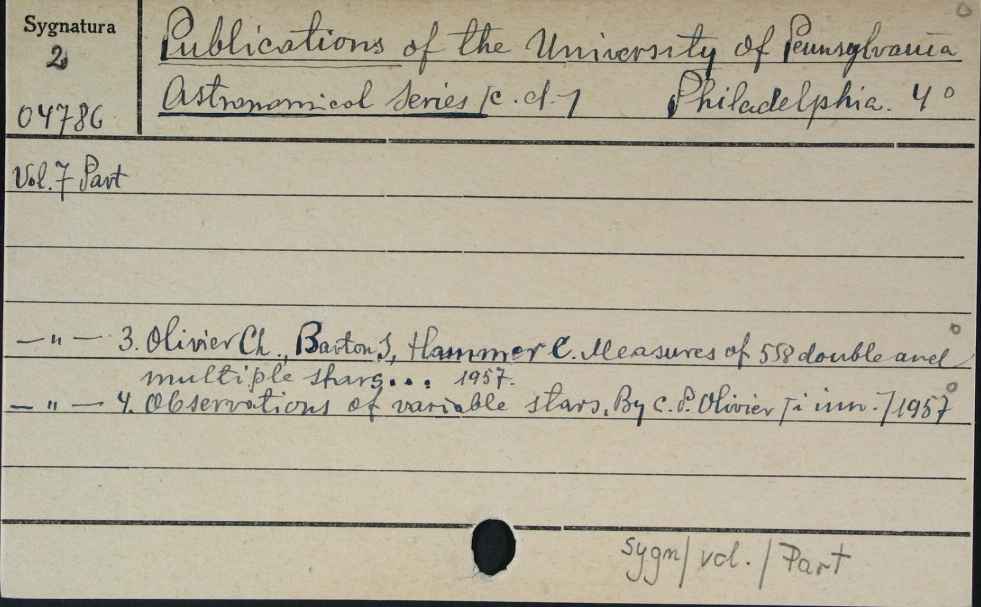 Sygnatura
2
04786
Publications of the University of Pennsylvania
Astronomical Series /c.d./ Philadelphia. 4°
Vol. 7 Part
— " — 3. Olivier Ch., Barton S, Hammer C. Measures of 558 double and
multiple stars... 1957.
— " — 4. Observations of variable stars. By C. P. Olivier [i inn.] 1957
Sygn/vol./Part